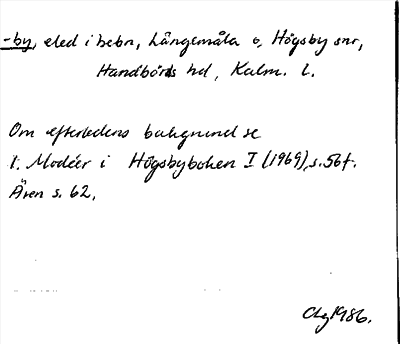 -by, eled i bebn, Långemåla o, Högsby snr,
Handbörds hd, Kalm. l.
Om efterledens bakgrund se
I. Modéer i Högsbyboken I (1969), s. 56 f.
Även s. 62.
1986.